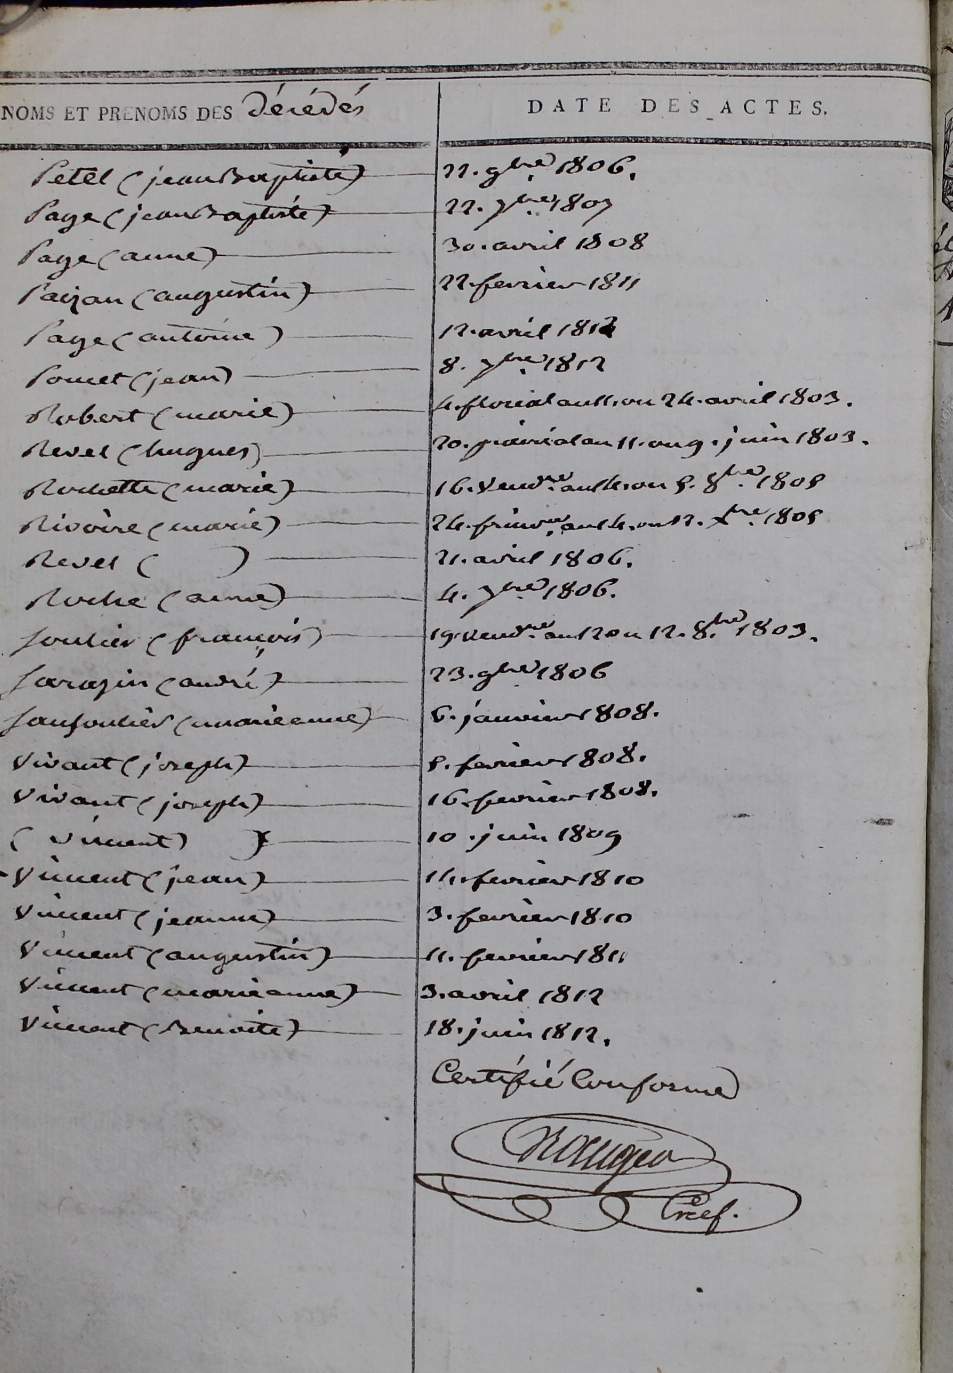 NOMS ET PRENOMS DES Décédés DATE DES ACTES.
Petel (jean Baptiste) 22. 9bre 1806.
Page (jean Baptiste) 22. 7bre 1807
Page (anne) 30. avril 1808
(augustin) 22 fevrier 1811
Page (antoine) 12. avril 1812
Pomet (jean) 8. 7bre 1812
Robert (marie) 4. floréal an 11. ou 24. avril 1803.
Revel (hugues) 20. prairial an 11. ou 9. juin 1803.
Rochette (marie) 16. Vendre. an 14. ou 8. 8bre 1805
Rivoire (marie) 24. frimre an 14. ou 1805
Revel ( ) 21. avril 1806.
Roche (anne) 4. 7bre 1806.
Soulier (françois) 19. Vendre. an 12 ou 12. 8bre 1803.
Sarazin (andré) 23. 9bre 1806
(marieanne) 6. janvier 1808.
Vivant (joseph) 8. fevrier 1808.
Vivant (joseph) 16. fevrier 1808.
( Vincent) 10. juin 1809
Vincent (jean) 14. fevrier 1810
Vincent (jeanne) 3. fevrier 1810
Vincent (augustin) 11. fevrier 1811
Vincent (marieanne) 3. avril 1812
Vincent (Benoite) 18. juin 1812.
Certifié Conforme